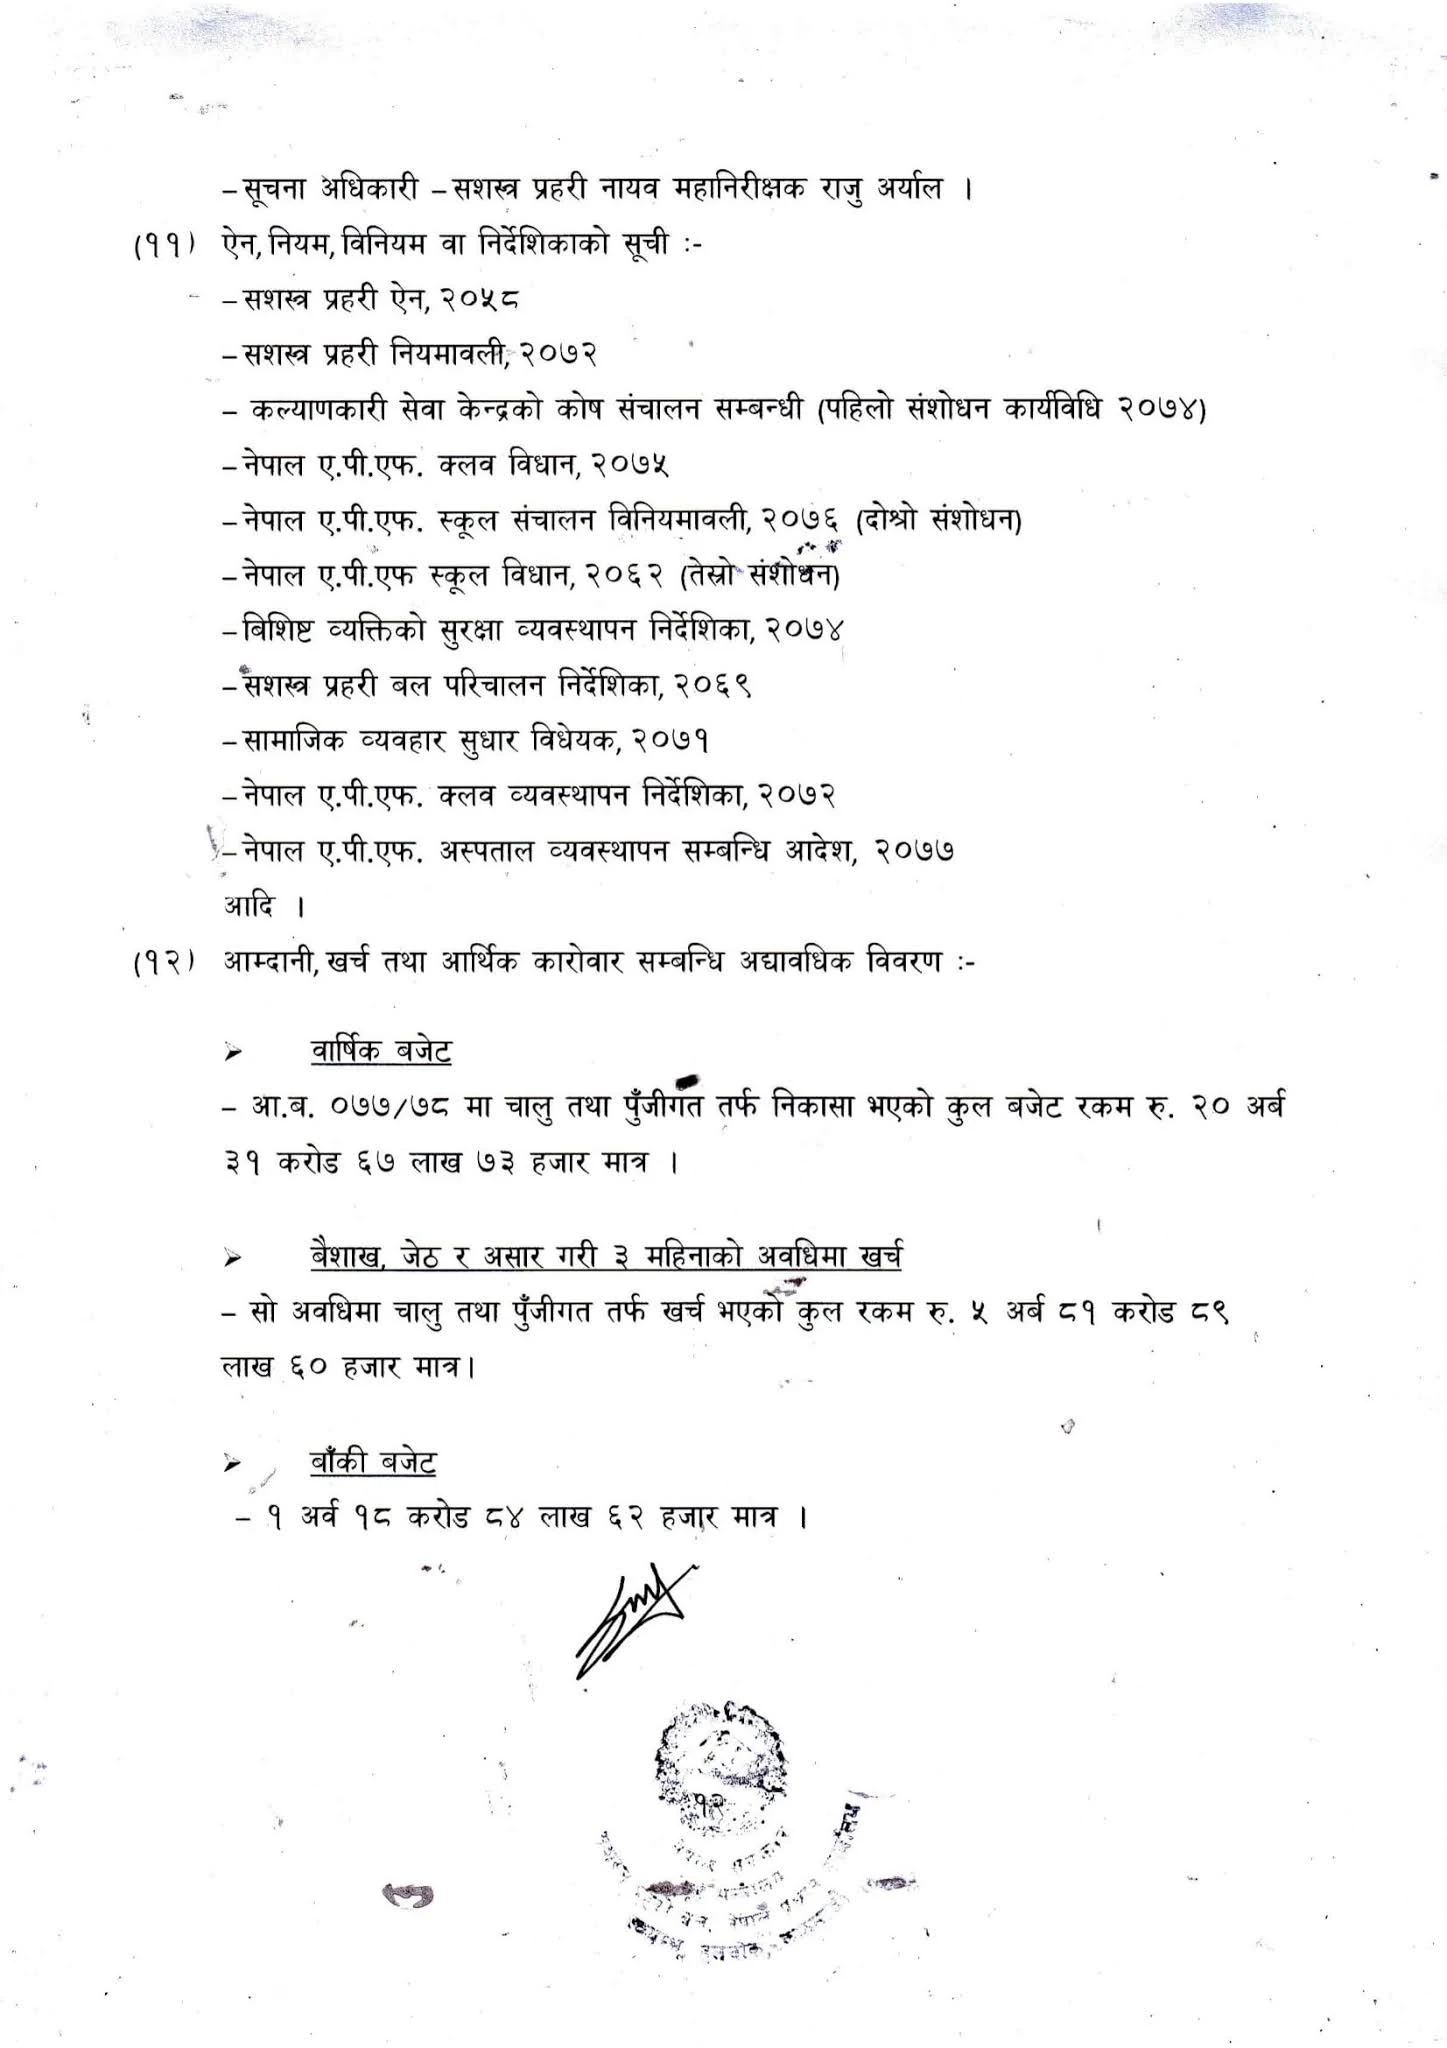 –सूचना अधिकारी –सशस्त्र प्रहरी नायव महानिरीक्षक राजु अर्याल ।
(११) ऐन, नियम, विनियम वा निर्देशिकाको सूची :-
–सशस्त्र प्रहरी ऐन, २०५८
–सशस्त्र प्रहरी नियमावली, २०७२
– कल्याणकारी सेवा केन्द्रको कोष संचालन सम्बन्धी (पहिलो संशोधन कार्यविधि २०७४)
–नेपाल ए.पी.एफ. क्लव विधान, २०७५
–नेपाल ए.पी.एफ. स्कूल संचालन विनियमावली, २०७६ (दोश्रो संशोधन)
–नेपाल ए.पी.एफ स्कूल विधान, २०६२ (तेस्रो संशोधन)
–बिशिष्ट व्यक्तिको सुरक्षा व्यवस्थापन निर्देशिका, २०७४
–सशस्त्र प्रहरी बल परिचालन निर्देशिका, २०६९
–सामाजिक व्यवहार सुधार विधेयक, २०७१
–नेपाल ए.पी.एफ. क्लव व्यवस्थापन निर्देशिका, २०७२
–नेपाल ए.पी.एफ. अस्पताल व्यवस्थापन सम्बन्धि आदेश, २०७७
आदि ।
(१२) आम्दानी, खर्च तथा आर्थिक कारोवार सम्बन्धि अद्यावधिक विवरण :-
➢ वार्षिक बजेट
– आ.ब. ०७७/७८ मा चालु तथा पुँजीगत तर्फ निकासा भएको कुल बजेट रकम रु. २० अर्ब
३१ करोड ६७ लाख ७३ हजार मात्र ।
➢ बैशाख, जेठ र असार गरी ३ महिनाको अवधिमा खर्च
– सो अवधिमा चालु तथा पुँजीगत तर्फ खर्च भएको कुल रकम रु. ५ अर्ब ८१ करोड ८९
लाख ६० हजार मात्र।
➢ बाँकी बजेट
– १ अर्व १८ करोड ८४ लाख ६२ हजार मात्र ।
१२